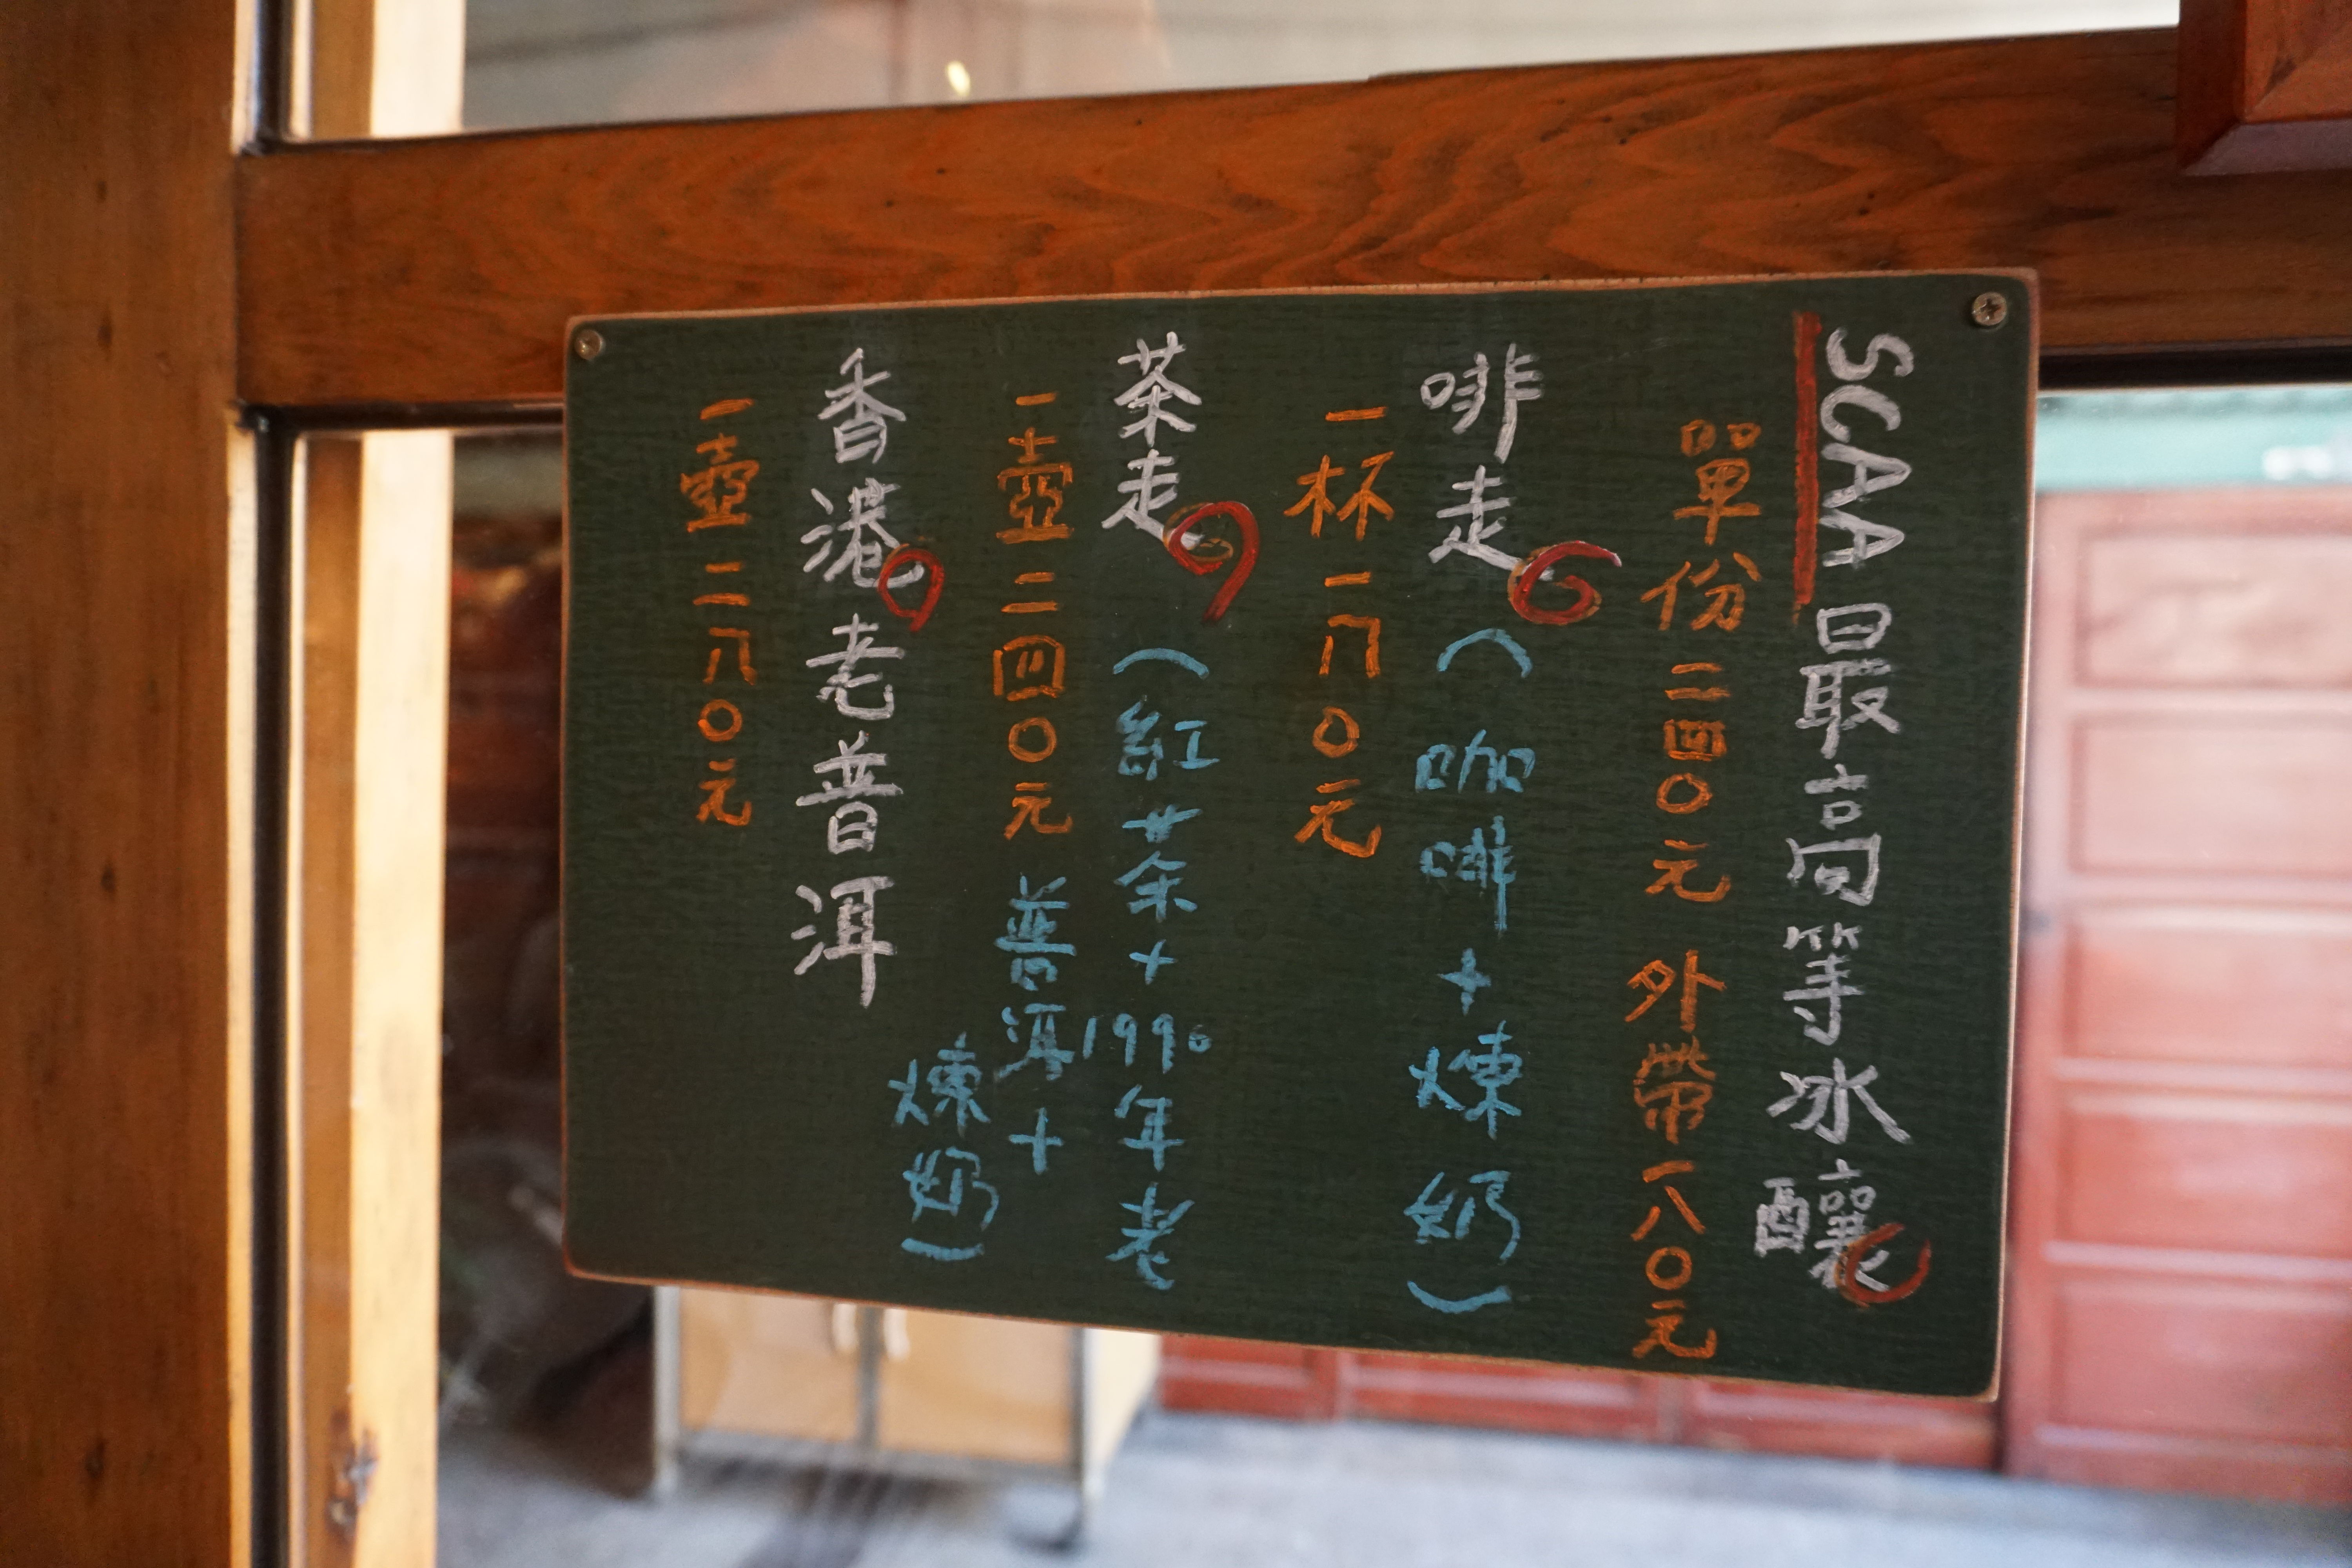 SCAA最高等冰釀
單份二四〇元 外帶一八〇元
啡走
(咖啡+煉奶)
一杯一八〇元
茶走
(紅茶+1990年老
普洱+
煉奶)
一壺二四〇元
香港老普洱
一壺二八〇元